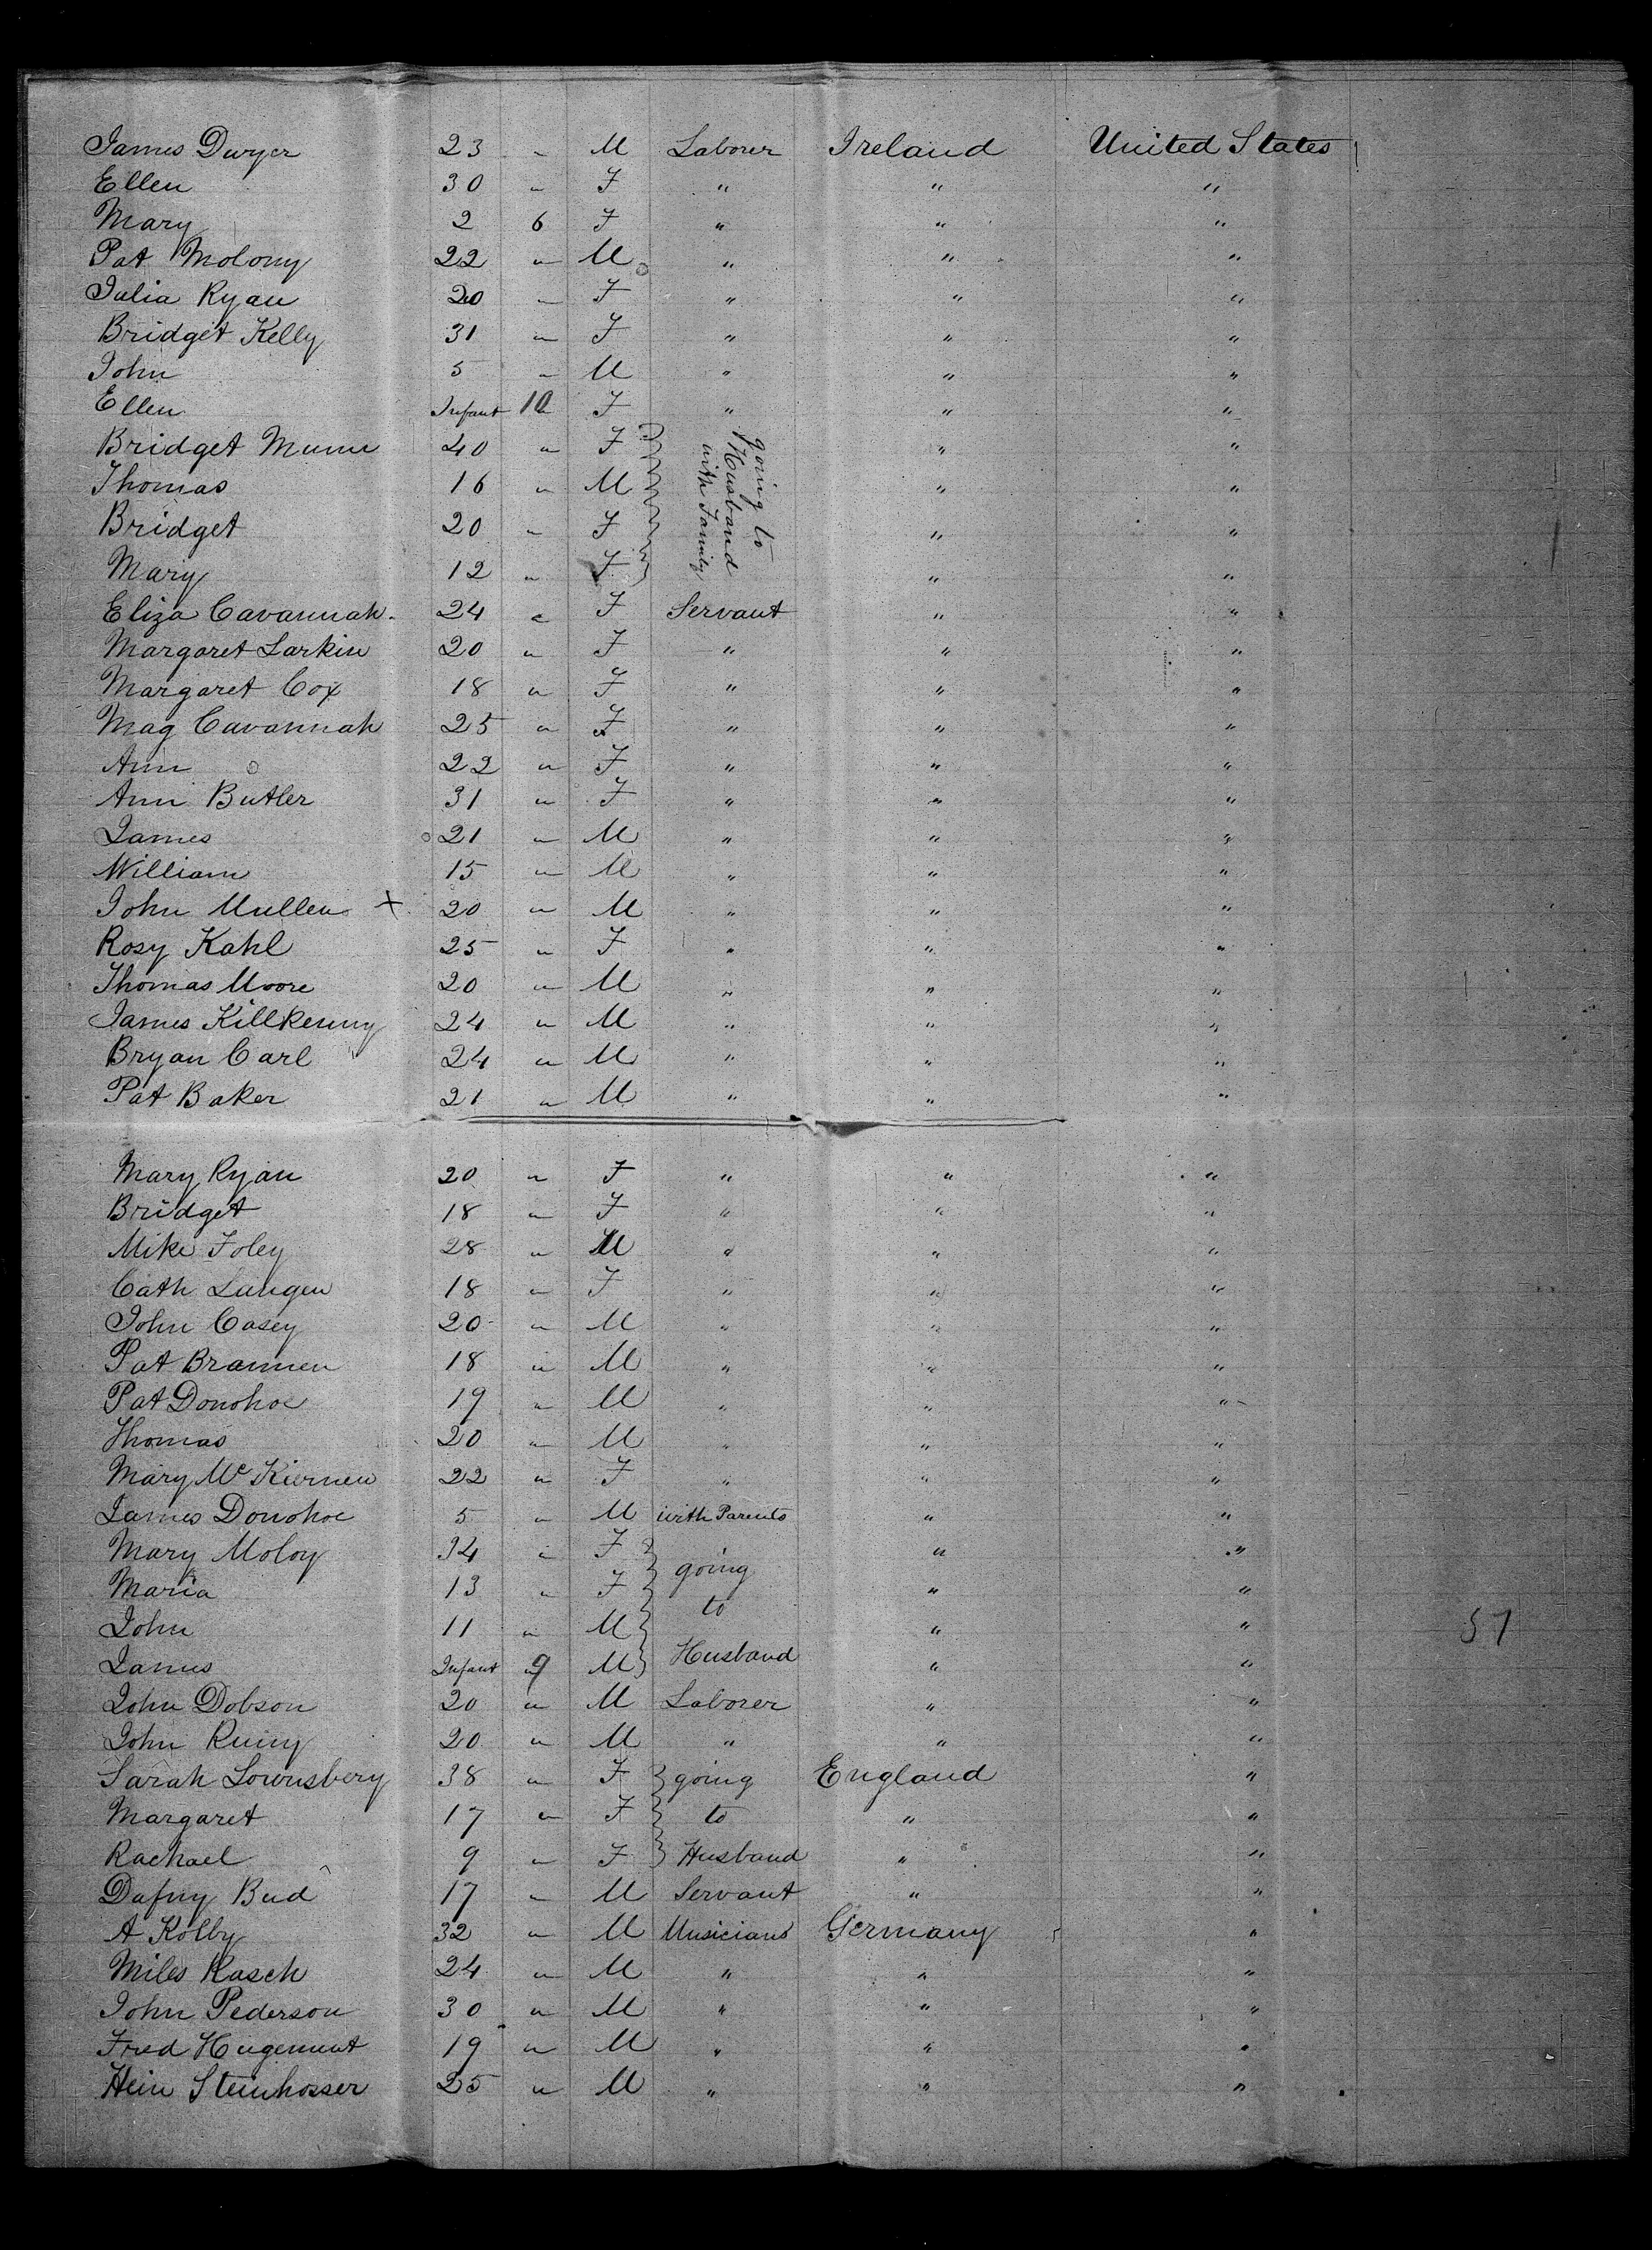 James Dwyer 23 " M Laborer Ireland United States
Ellen 30 " F " " "
Mary 2 6 F " " "
Pat Molony 22 " M " " "
Julia Ryan 20 " F " " "
Bridget Kelly 31 " F " " "
John 5 " M " " "
Ellen Infant 10 F " " "
Bridget Munn 40 " F going to Husband with Family " "
Thomas 16 " M " "
Bridget 20 " F " "
Mary 12 " F " "
Eliza Cavannah 24 " F Servant " "
Margaret Larkin 20 " F " " "
Margaret Cox 18 " F " " "
Mag Cavannah 25 " F " " "
Ann 22 " F " " "
Ann Butler 31 " F " " "
James 21 " M " " "
William 15 " M " " "
John Mullen x 20 " M " " "
Rosy Kahl 25 " F " " "
Thomas Moore 20 " M " " "
James Killkenny 24 " M " " "
Bryan Carl 24 " M " " "
Pat Baker 21 " M " " "
Mary Ryan 20 " F " " "
Bridget 18 " F " " "
Mike Foley 28 " M " " "
Cath Langen 18 " F " " "
John Casey 20 " M " " "
Pat Brannen 18 " M " " "
Pat Donohoe 19 " M " " "
Thomas 20 " M " " "
Mary McKiernen 22 " F " " "
James Donohoe 5 " M with Parents " "
Mary Moloy 34 " F going " "
Maria 13 " F to " "
John 11 " M " " 57
James Infant 9 M Husband " "
John Dobson 20 " M Laborer " "
John 20 " M " " "
Sarah Lownsbery 38 " F going England "
Margaret 17 " F to " "
Rachael 9 " F Husband " "
Dafny Bud 17 " M Servant " "
A Kolby 32 " M Musicians Germany "
Miles Rasch 24 " M " " "
John Pederson 30 " M " " "
Fred 19 " M " " "
Hein Steinhosser 25 " M " " "